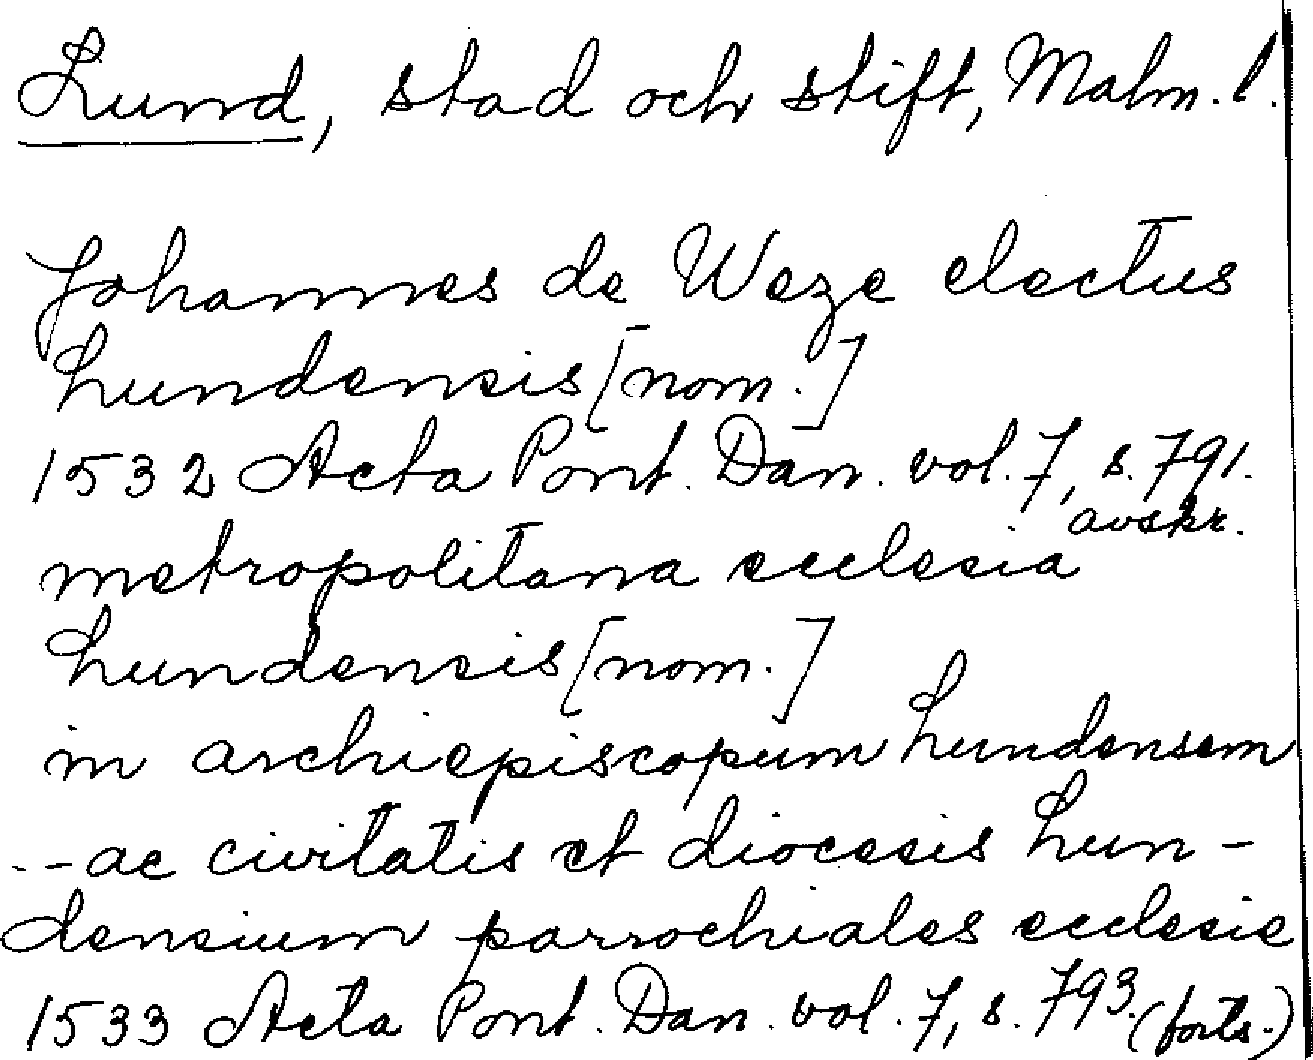 Lund, stad och stift, Malm. l.
Johannes de Weze electus
Lundensis [nom.]
1532 Acta Pont. Dan. vol. 7, s. 791.
avskr.
metropolitana ecclesia
Lundensis [nom.]
in archiepiscopum Lundensem
-- ac civitatis et diocesis Lun-
densium parrochiales ecclesie
1533 Acta Pont. Dan. vol. 7, s. 793. (forts.)